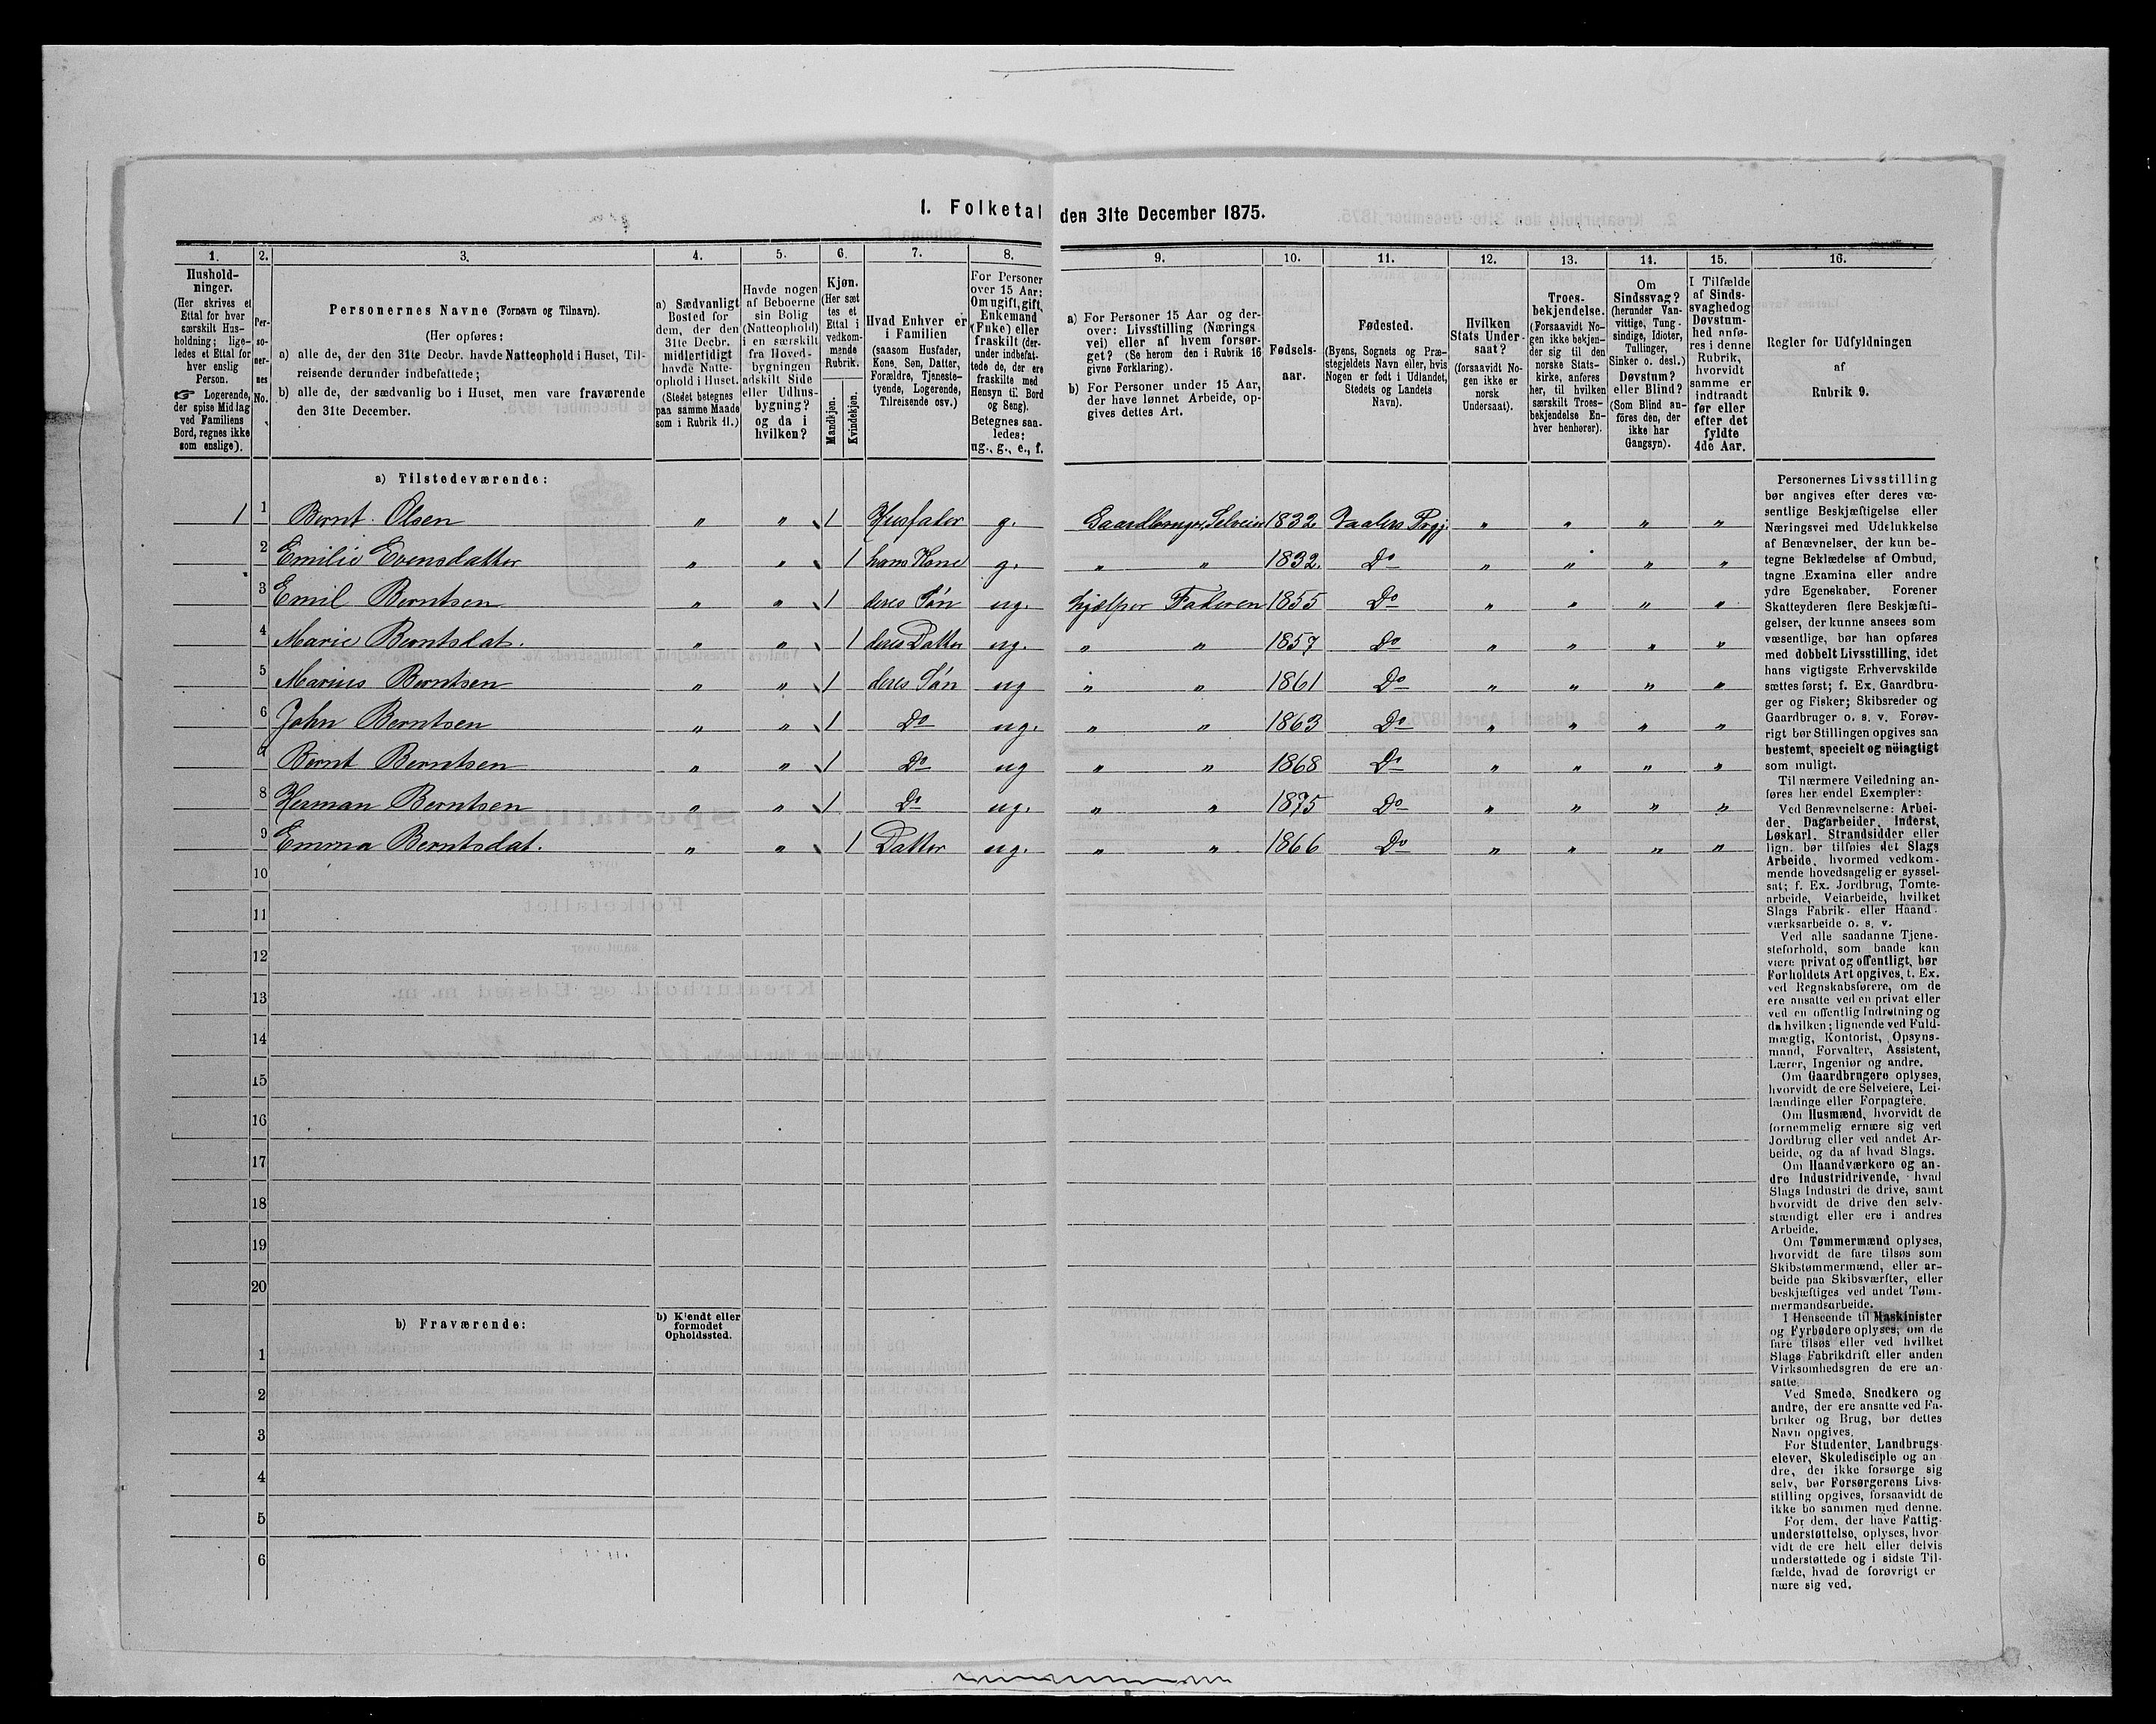 1. Folketal den 31te December 1875.
1. 2. 3. 4. 5. 6. 7. 8. 9. 10. 11. 12. 13. 14. 15. 16.
Hushold-
ninger.
(Her skrives et
Ettal for hver
særskilt Hus-
holdning; lige-
ledes et Ettal for
hver enslig
Person.
☞ Logerende,
der spise Middag
ved Familiens
Bord, regnes ikke
som enslige).
Per-
so-
ner-
nes
No.
Personernes Navne (Fornavn og Tilnavn).
(Her opføres:
a) alle de, der den 31te Decbr. havde Natteophold i Huset, Til-
reisende derunder indbefattede;
b) alle de, der sædvanlig bo i Huset, men vare fraværende
den 31te December.
a) Sædvanligt
Bosted for
dem, der den
31te Decbr.
midlertidigt
havde Natte-
ophold i Huset.
(Stedet betegnes
paa samme Maade
som i Rubrik 11.)
Havde nogen
af Beboerne
sin Bolig
(Natteophold)
i en særskilt
fra Hoved-
bygningen
adskilt Side
eller Udhus-
bygning?
og da i
hvilken?
Kjøn.
(Her sæt
tes et
Ettal i
vedkom-
mende
Rubrik.
Mandkjøn.
Kvindekjøn.
Hvad Enhver er
i Familien
(saasom Husfader,
Kone, Søn, Datter,
Forældre, Tjeneste-
tyende, Logerende,
Tilreisende osv.)
For Personer
over 15 Aar:
Om ugift, gift,
Enkemand
(Enke) eller
fraskilt (der-
under indbefat-
tede de, der ere
fraskilte med
Hensyn til Bord
og Seng).
Betegnes saa-
ledes:
ug., g., e., f.
a) For Personer 15 Aar og der-
over: Livsstilling (Nærings
vei) eller af hvem forsør-
get? (Se herom den i Rubrik 16
givne Forklaring).
b) For Personer under 15 Aar,
der have lønnet Arbeide, op-
gives dettes Art.
Fødsels-
aar.
Fødested.
(Byens, Sognets og Præ-
stegjeldets Navn eller, hvis
Nogen er født i Udlandet,
Stedets og Landets
Navn).
Hvilken
Stats Under-
saat?
(forsaavidt No-
gen ikke er
norsk
Undersaat).
Troes-
bekjendelse.
(Forsaavidt No-
gen ikke bekjen-
der sig til den
norske Stats-
kirke, anføres
her, til hvilken
særskilt Troes-
bekjendelse En-
hver henhører).
Om
Sindssvag?
(herunder Van-
vittige, Tung-
sindige, Idioter,
Tullinger,
Sinker o. desl.)
Døvstum?
eller Blind?
(Som Blind an-
føres den, der
ikke har
Gangsyn).
I Tilfælde
af Sinds-
svaghed og
Døvstum-
hed anfø-
res i denne
Rubrik,
hvorvidt
samme er
indtraadt
før eller
efter det
fyldte
4de Aar.
Regler for Udfyldningen
af
Rubrik 9.
a) Tilstedeværende:
1 1 Bernt Olsen " " 1 Husfader g. Gaardbruger, Selveier 1832 Vaalers Prgj. " " " "
2 Emilie Evensdatter " " 1 hans Kone g. " " 1832. Do " " " "
3 Emil Berntsen " " 1 deres Søn ug. hjælper Faderen 1855 Do " " " "
4 Marie Berntsdat. " " 1 deres Datter ug. " " 1857 Do " " " "
5 Marius Berntsen " " 1 deres Søn ug " " 1861 Do " " " "
6 John Berntsen " " 1 Do ug. " " 1863 Do " " " "
7 Bernt Berntsen " " 1 Do ug " " 1868 Do " " " "
8 Herman Berntsen " " 1 Do ug. " " 1875 Do " " " "
9 Emma Berntsdat. " " 1 Datter ug. " " 1866 Do " " " "
10
11
12
13
14
15
16
17
18
19
20
b) Fraværende:
b) Kjendt eller
formodet
Opholdssted.
1
2
3
4
5
6
Personernes Livsstilling
bør angives efter deres væ-
sentlige Beskjæftigelse eller
Næringsvei med Udelukkelse
af Benævnelser, der kun be-
tegne Beklædelse af Ombud,
tagne Examina eller andre
ydre Egenskaber. Forener
Skatteyderen flere Beskjæfti-
gelser, der kunne ansees som
væsentlige, bør han opføres
med dobbelt Livsstilling, idet
hans vigtigste Erhvervskilde
sættes først; f. Ex. Gaardbru-
ger og Fisker; Skibsreder og
Gaardbruger o. s. v. Forøv-
rigt bør Stillingen opgives saa
bestemt, specielt og nøiagtigt
som muligt.
Til nærmere Veiledning an-
føres her endel Exempler:
Ved Benævnelserne: Arbei-
der, Dagarbeider, Inderst,
Løskarl, Strandsidder eller
lign. bør tilføies det Slags
Arbeide, hvormed vedkom-
mende hovedsagelig er syssel-
sat; f. Ex. Jordbrug, Tomte-
arbeide, Veiarbeide, hvilket
Slags Fabrik- eller Haand-
værksarbeide o. s. v.
Ved alle saadanne Tjene-
steforhold, som baade kan
være privat og offentligt, bør
Forholdets Art opgives, t. Ex.
ved Regnskabsførere, om de
ere ansatte ved en privat eller
ved en offentlig Indretning og
da hvilken; lignende ved Fuld-
mægtig, Kontorist, Opsyns-
mand, Forvalter, Assistent,
Lærer, Ingeniør og andre.
Om Gaardbrugere oplyses,
hvorvidt de ere Selveiere, Lei-
lændinge eller Forpagtere.
Om Husmænd, hvorvidt de
fornemmelig ernære sig ved
Jordbrug eller ved andet Ar-
beide, og da af hvad Slags.
Om Haandværkere og an-
dre Industridrivende, hvad
Slags Industri de drive, samt
hvorvidt de drive den selv-
stændigt eller ere i andres
Arbeide.
Om Tømmermænd oplyses,
hvorvidt de fare tilsøs som
Skibstømmermænd, eller ar-
beide paa Skibsværfter, eller
beskjæftiges ved andet Tøm-
mermandsarbeide.
I Henseende til Maskinister
og Fyrbødere oplyses, om de
fare tilsøs eller ved hvilket
Slags Fabrikdrift eller anden
Virksomhedsgren de ere an-
satte.
Ved Smede, Snedkere og
andre, der ere ansatte ved Fa-
briker og Brug, bør dettes
Navn opgives.
For Studenter, Landbrugs-
elever, Skoledisciple og an
dre, der ikke forsørge sig
selv, bør Forsørgerens Livs-
stilling opgives, forsaavidt de
ikke bo sammen med denne.
For dem, der have Fattig-
understøttelse, oplyses, hvor-
vidt de ere helt eller delvis
understøttede og i sidste Til-
fælde, hvad de forøvrigt er
nære sig ved.